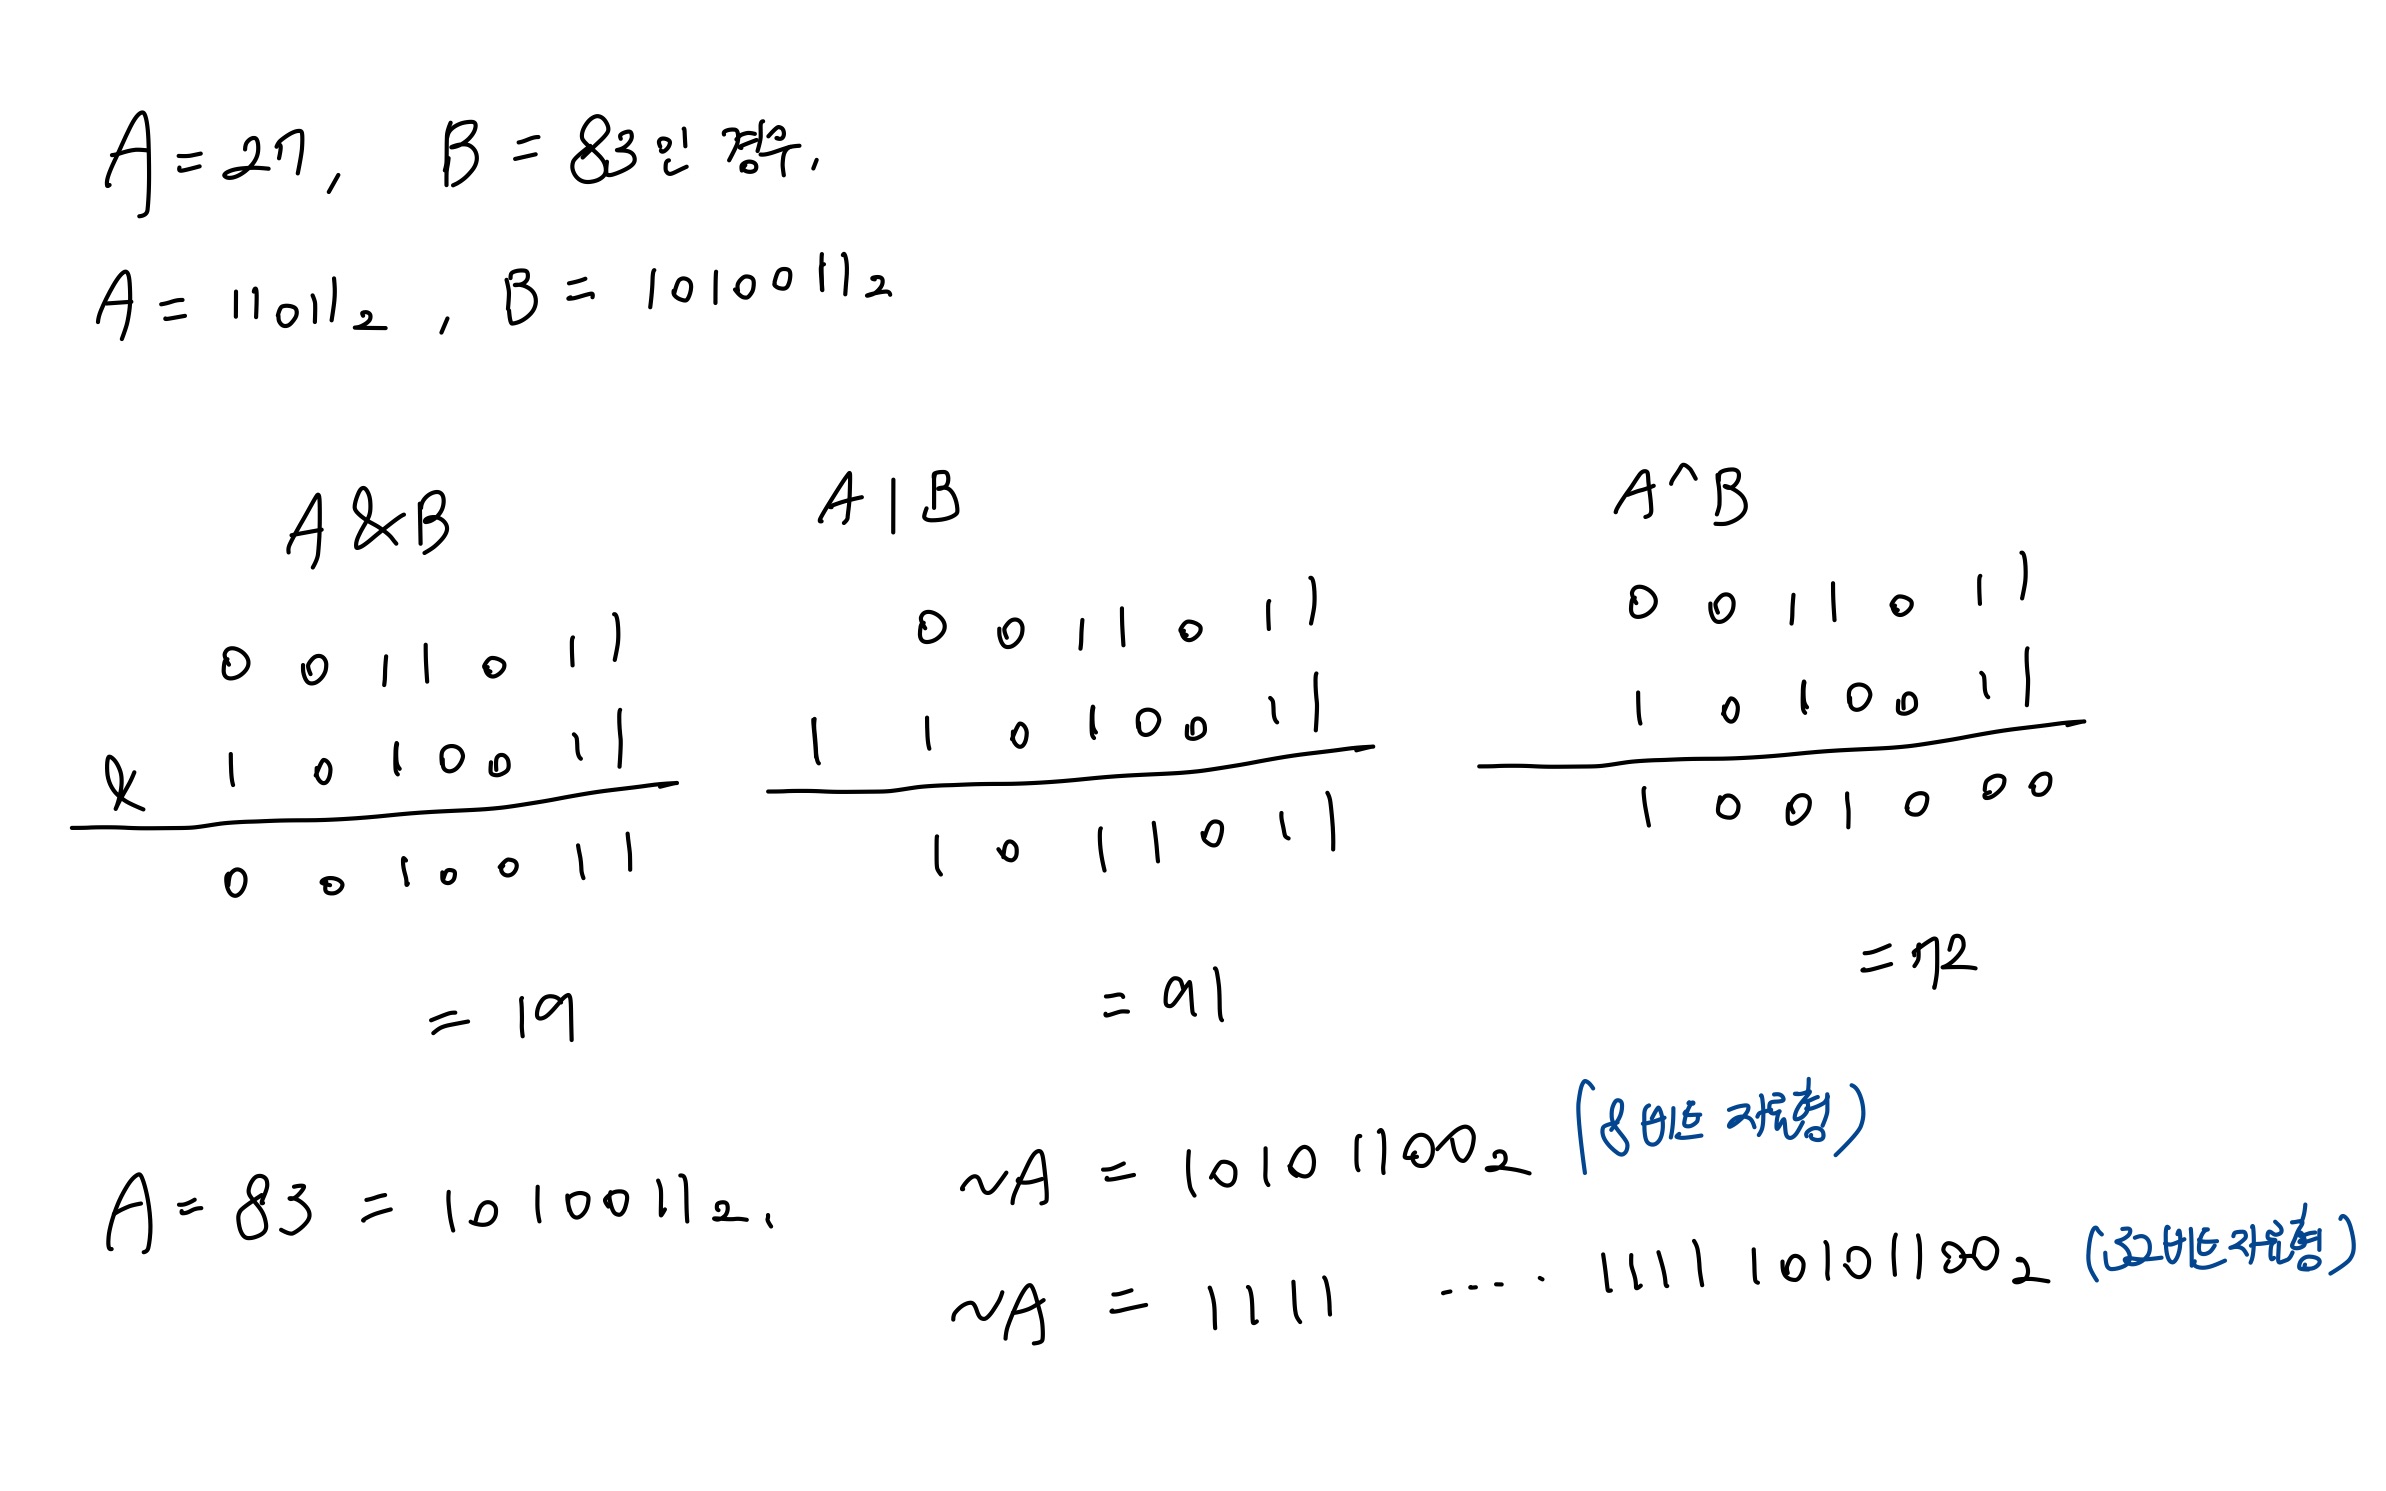 A = 27, B = 83인 경우.
A = 11011₂, B = 1010011₂
A & B
0 0 1 1 0 1 1
& 1 0 1 0 0 1 1
0 0 1 0 0 1 1
= 19
A | B
0 0 1 1 0 1 1
| 1 0 1 0 0 1 1
1 0 1 1 0 1 1
= 91
A ^ B
0 0 1 1 0 1 1
1 0 1 0 0 1 1
1 0 0 1 0 0 0
= 72
A = 83 = 1010011₂.
~A = 10101100₂ (8비트 자료형)
~A = 1111 ..... 111110101100₂ (32비트 자료형)